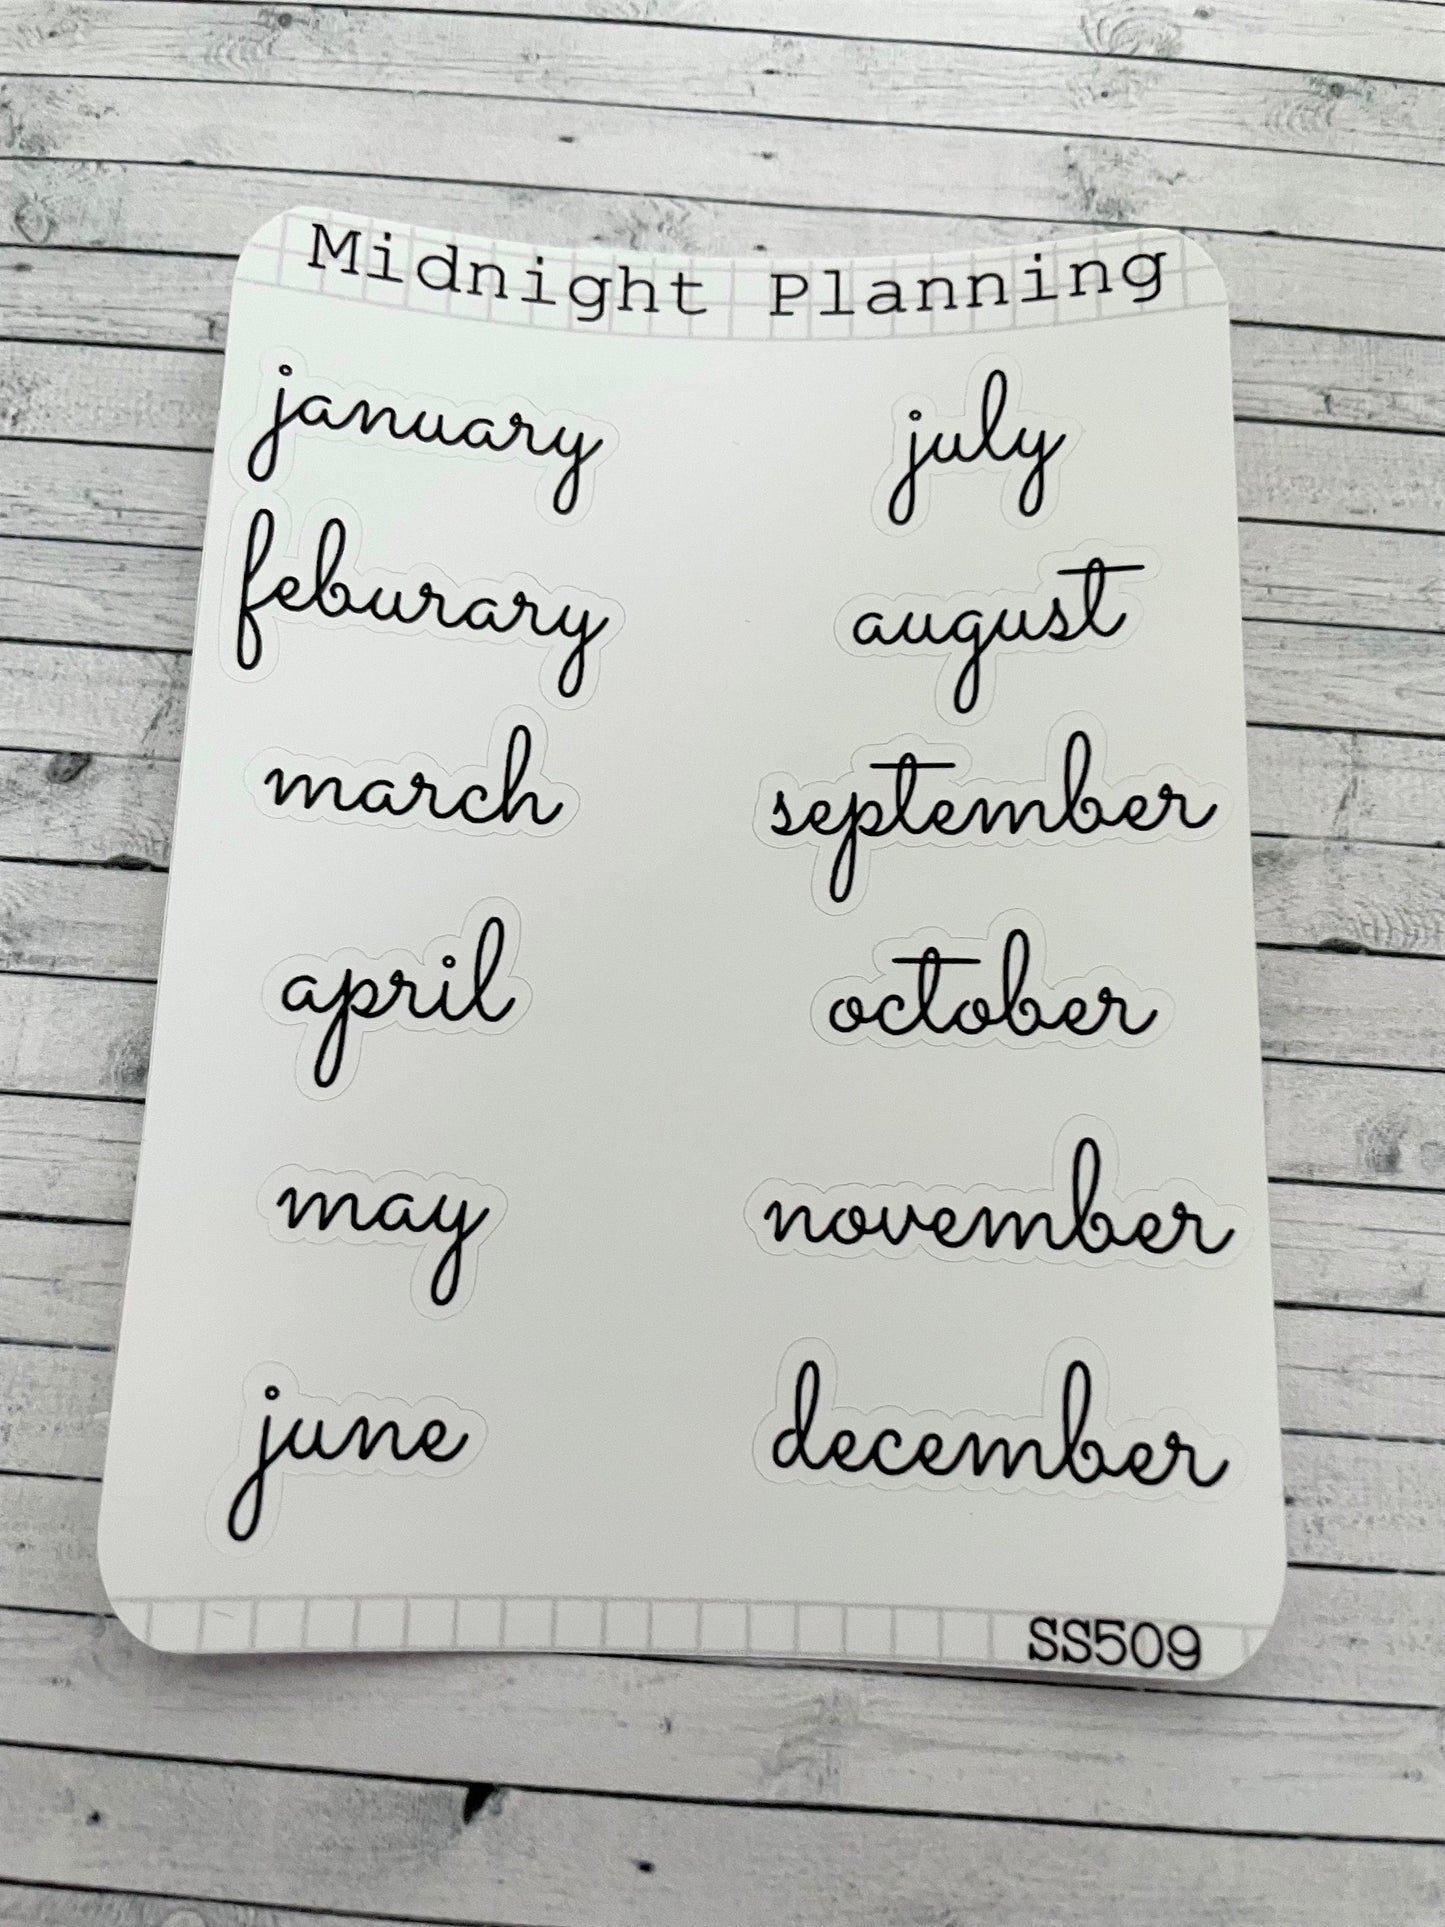 Midnight Planning
january
feburary
march
april
may
june
july
august
september
october
november
december
SS509